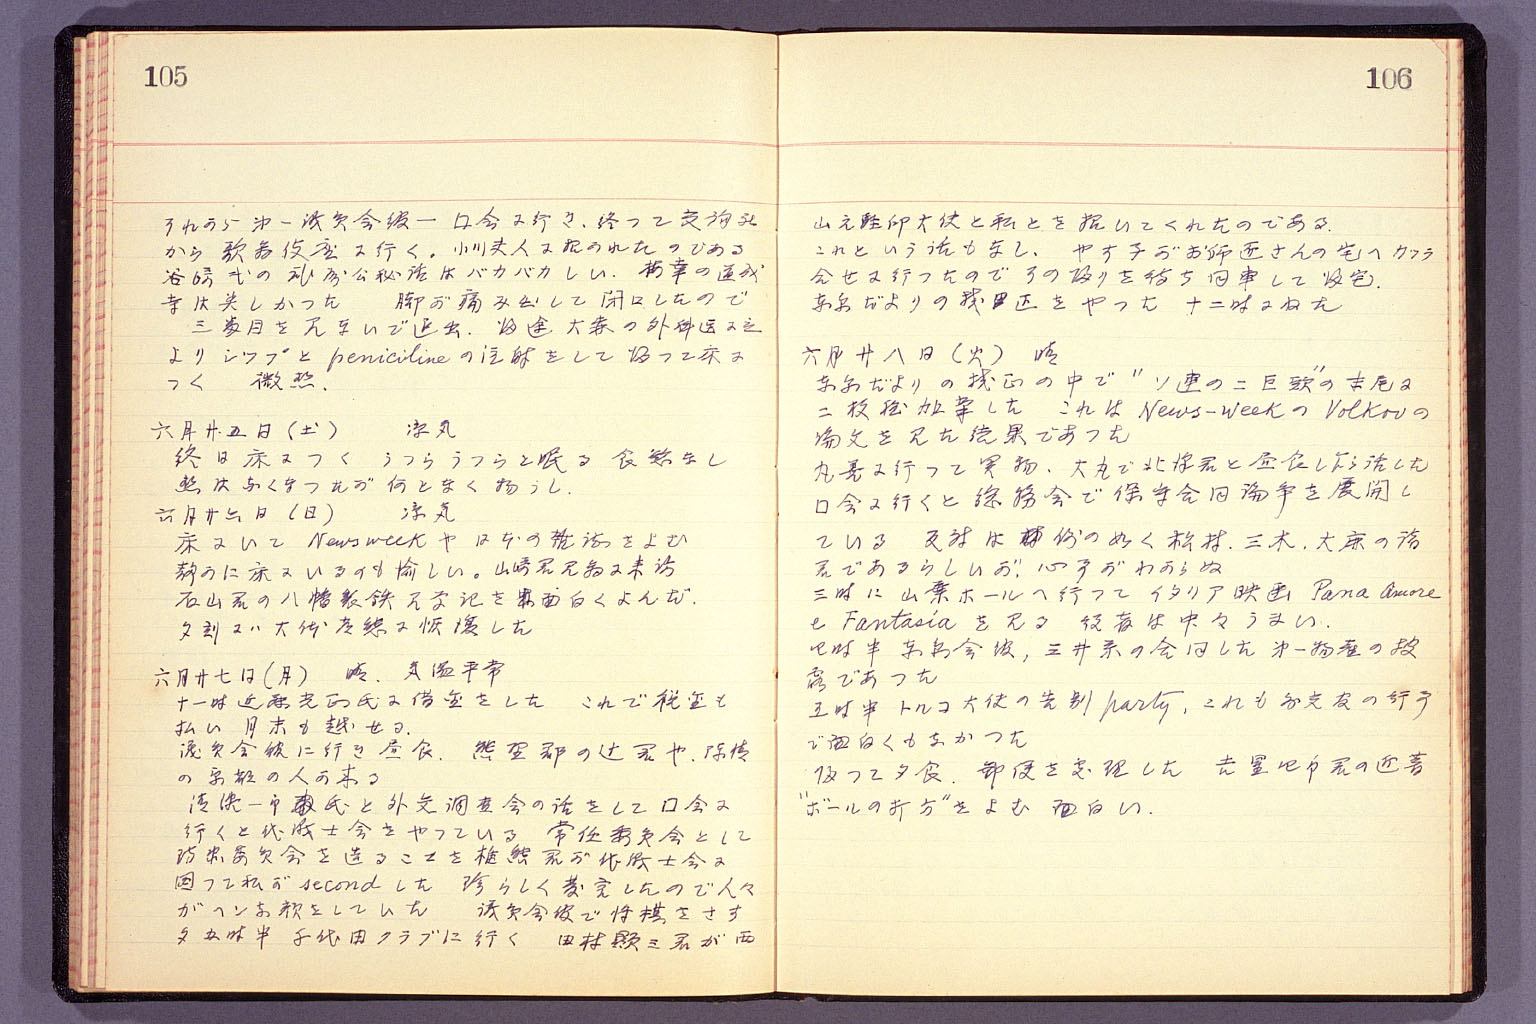 105
それから第一議員会館 口会に行き、終って交詢社
から歌舞伎座に行く。小川夫人に招かれたのである
谷崎氏の はバカバカしい. 梅幸の道成
寺は美しかった 脚が痛み出して閉口したので
三幕目を見ないで退去. 帰途大森の外科医に立
よりシップと penicilineの注射をして帰って床に
つく 微熱.
六月廿五日(土) 涼気
終日床につく うつらうつらと眠る 食慾なし
熱は なくなったが何となく物うし.
六月廿六日(日) 涼気
床にいて Newsweekや日本の雑誌をよむ
静かに床にいるのも愉しい。山崎君見舞に来訪
石山君の八幡製鉄見学記を面白くよんだ.
夕刻には大体常態に恢復した
六月廿七日(月) 晴. 気温平常
十一時近藤 氏に借金をした これで税金も
払い 月末も越せる.
議員会館に行き昼食. 熊野郡の辻君や. 陳情
の の人が来る
清瀬一郎氏と外交調査会の話をして口会に
行くと代議士会をやっている 常任委員会として
委員会を造ることを椎熊君が代議士会に
図って私がsecondした 珍らしく発言したので人々
がヘンな顔をしていた 議員会館で将棋をさす
夕五時半 千代田クラブに行く 田村顕三君が西
106
山 大使と私とを招いてくれたのである.
これという話もなし. やす子がお師匠さんの宅へカツラ
合せに行ったのでその帰りを待ち同車して帰宅.
芦名だよりの校正をやった 十二時にねた
六月廿八日(火) 晴
だよりの校正の中で "ソ連の二巨頭"の末尾に
二枚程加筆した これはNews-weekのVolkovの
論文を見た結果であった
丸善に行って買物. 大丸で北 君と昼食しながら話した
口会に行くと総務会で保守合同論争を展開し
ている 反対は例の如く松村. 三木. 大麻の諸
君であるらしいが. 心事がわからぬ
三時に山葉ホールへ行って イタリア映画 Pana amore
e Fantasiaを見る 役者は中々うまい.
四時半 会館, 三井系の合同した第一物産の披
露であった
五時半 トルコ大使の告別party, これも外交官の行事
で面白くもなかった
帰って夕食. 郵便を処理した 君の近著
"ボールの行方"をよむ 面白い.